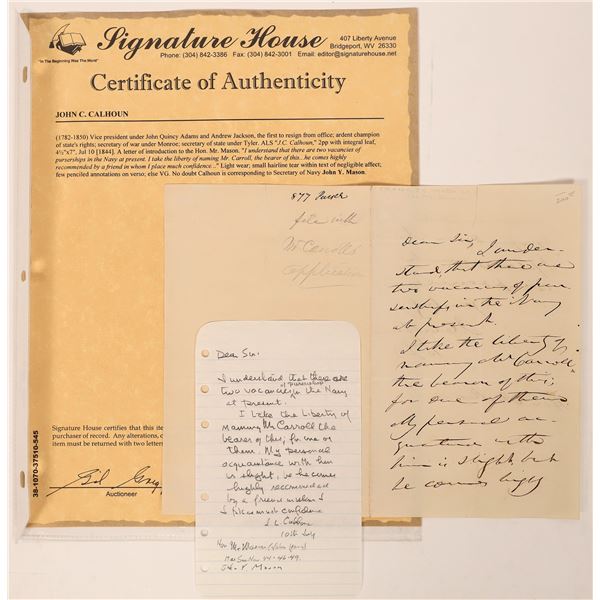 Signature House
"In the Beginning Was The Word"
407 Liberty Avenue
Bridgeport, WV 26330
Phone: (304) 842-3386 Fax: (304) 842-3001 Email: editor@signaturehouse.net
Certificate of Authenticity
JOHN C. CALHOUN
(1782-1850) Vice president under John Quincy Adams and Andrew Jackson, the first to resign from office; ardent champion
of state's rights; secretary of war under Monroe; secretary of state under Tyler. ALS "J.C. Calhoun," 2pp with integral leaf,
4½"x7", Jul 10 [1844]. A letter of introduction to the Hon. Mr. Mason. "I understand that there are two vacancies of
purserships in the Navy at present. I take the liberty of naming Mr. Carroll, the bearer of this...he comes highly
recommended by a friend in whom I place much confidence..." Light wear; small hairline tear within text of negligible affect;
few penciled annotations on verso; else VG. No doubt Calhoun is corresponding to Secretary of Navy John Y. Mason.
Signature House certifies that this ite
purchaser of record. Any alterations, c
item must be returned with two letter
Auctioneer
38-1070-37510-545
877 Purser
file with
Mr Carroll's
application
Dear Sir, I under-
stand, that there are
two vacancies of pur
serships in the Navy
at present.
I take the liberty of
naming Mr Carroll
the bearer of this,
for one of them.
My personal ac-
quaintance with
him is slight, but
he comes highly
Dear Sir.
I understand that there are
two vacancies of purserships in the Navy
at present.
I take the liberty of
naming Mr Carroll the
bearer of this, for one of
them. My personal
acquaintance with him
is slight, he comes
highly recommended
by a friend in whom I
place much confidence
J. C. Calhoun
10th July
Hon Mr Mason
44-46-49.
John Y. Mason